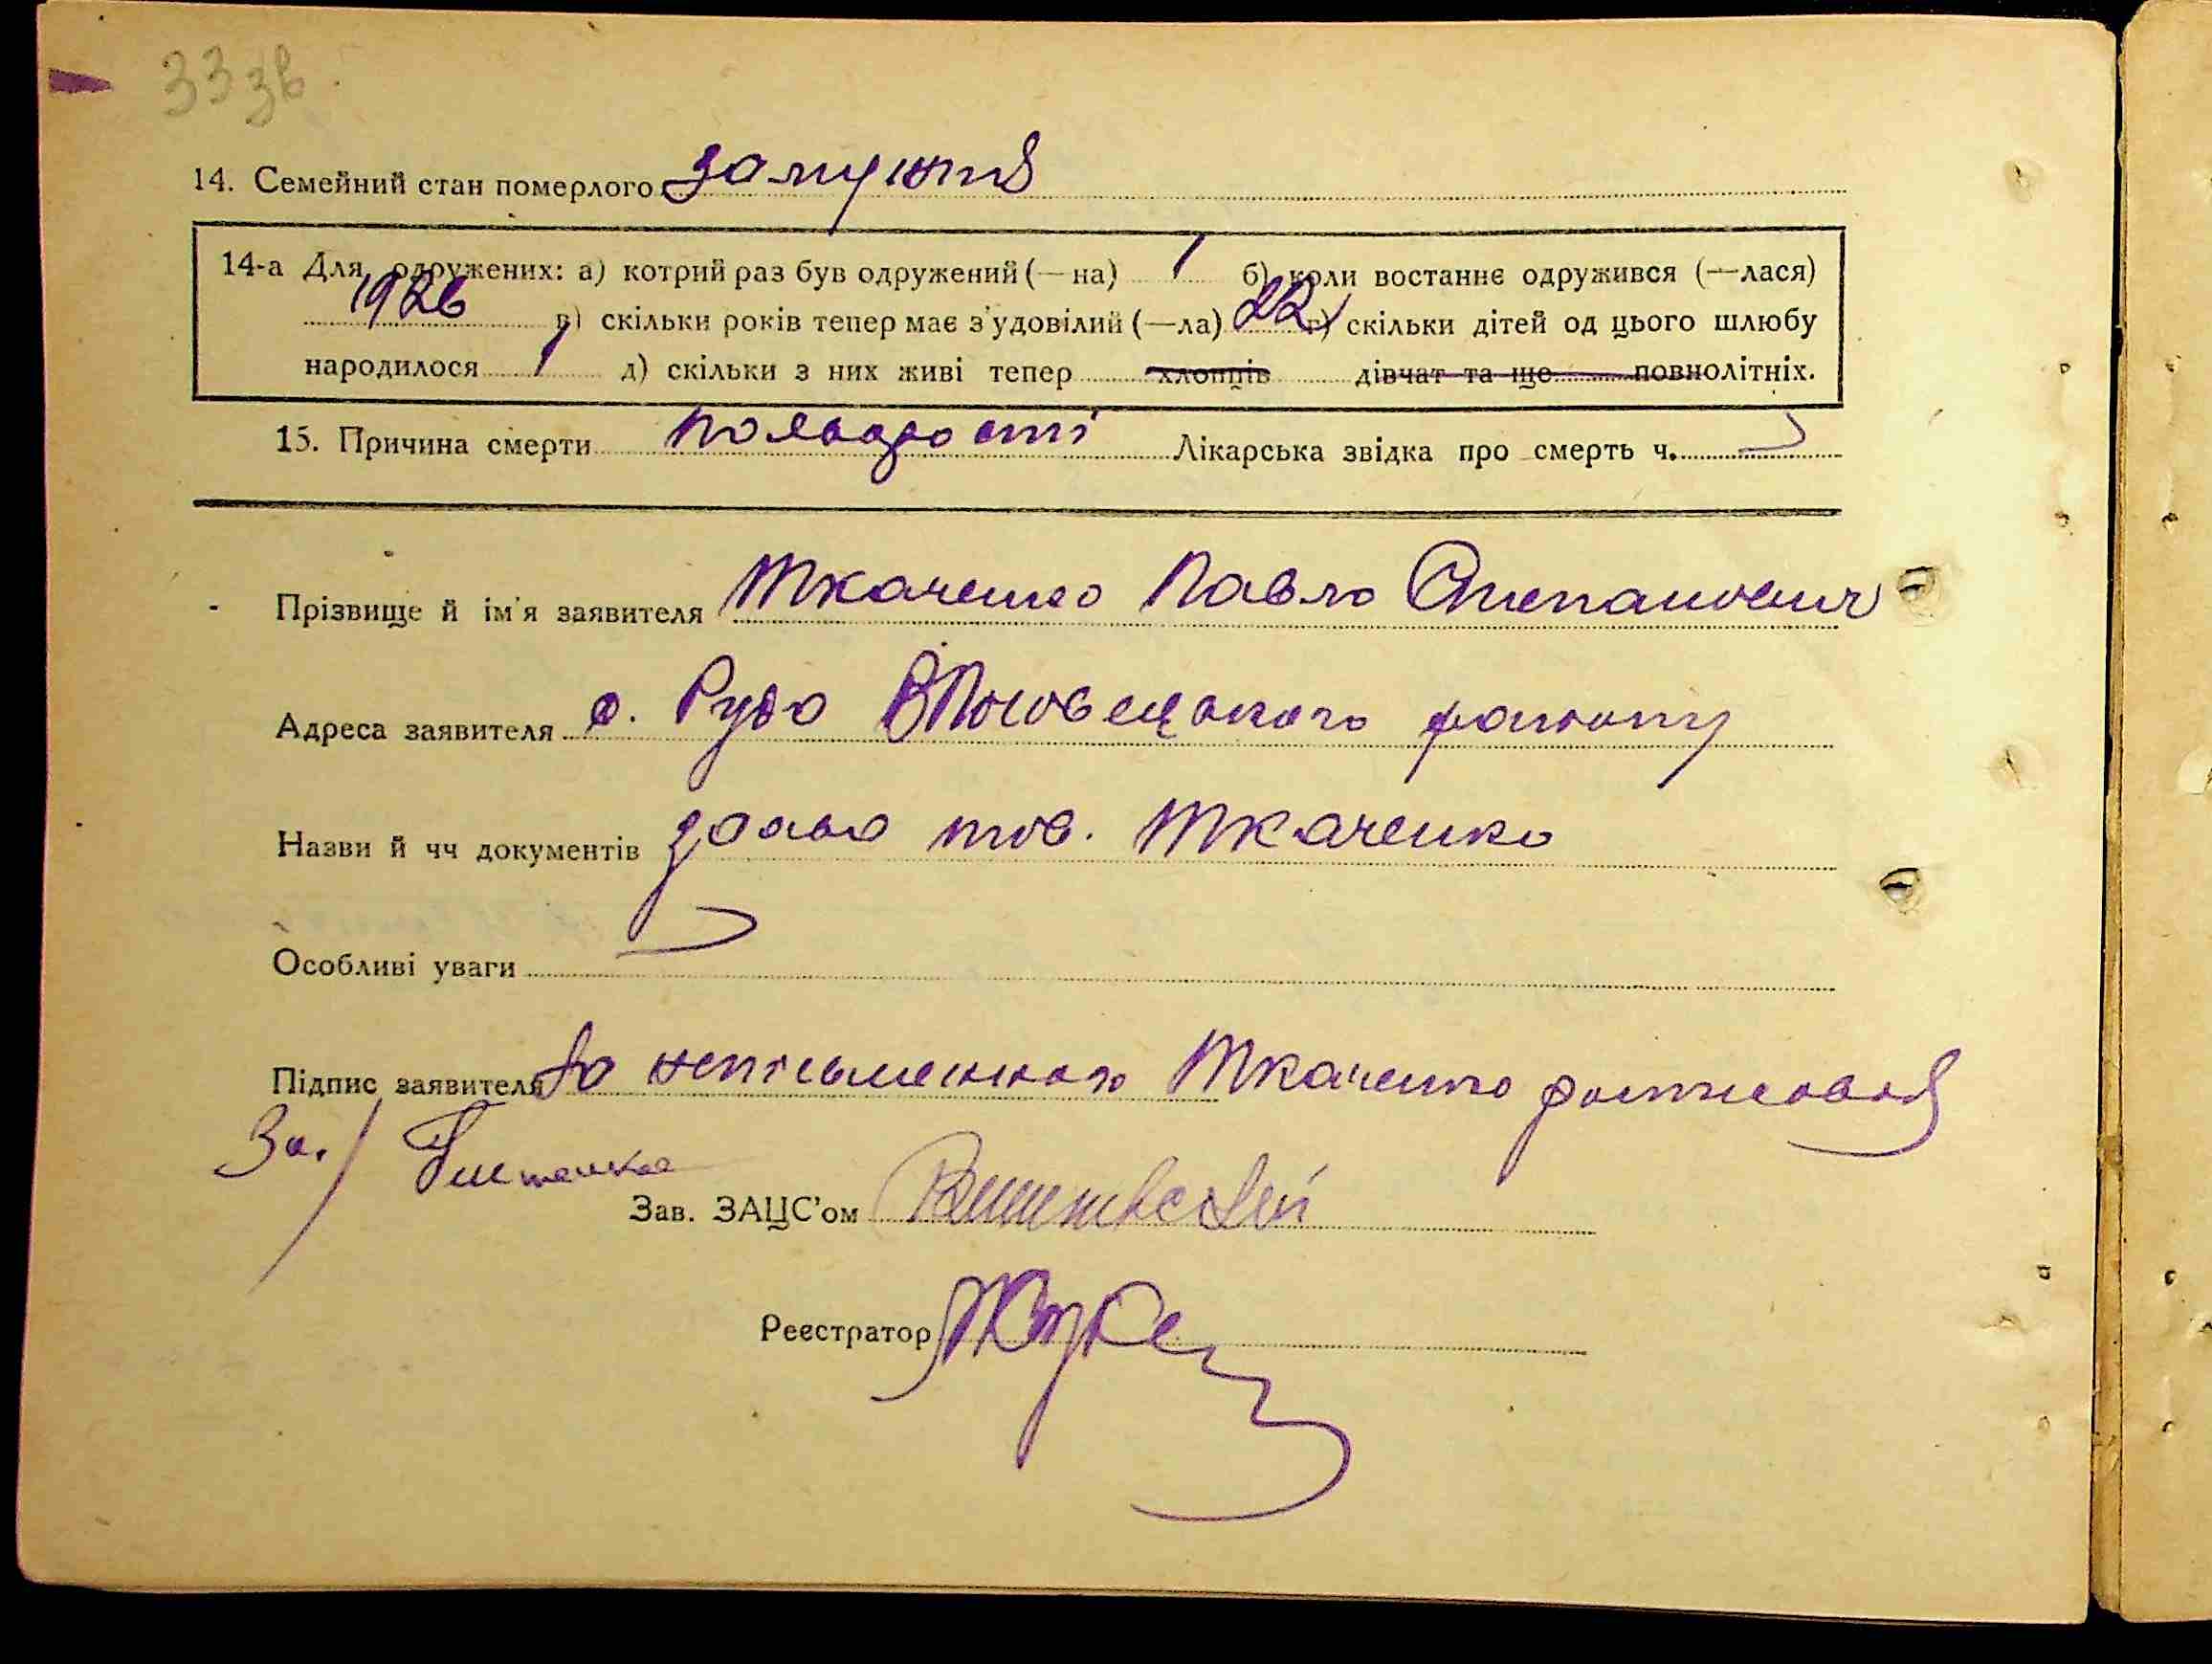 33 зв.
14. Семейний стан померлого замужня
14-а Для одружених: а) котрий раз був одружений (—на) 1 б) коли востаннє одружився (—лася)
1926 в) скільки років тепер має з'удовілий (—ла) 22 г) скільки дітей од цього шлюбу
народилося 1 д) скільки з них живі тепер хлопців дівчат та ще повнолітніх.
15. Причина смерти Лікарська звідка про смерть ч.
Прізвище й ім'я заявителя Ткаченко Павло Степанович
Адреса заявителя с. Руда району
Назви й чч документів тов. Ткаченко
Особливі уваги
Підпис заявителя За неписьменного Ткаченко
За.
Зав. ЗАЦС'ом
Реєстратор